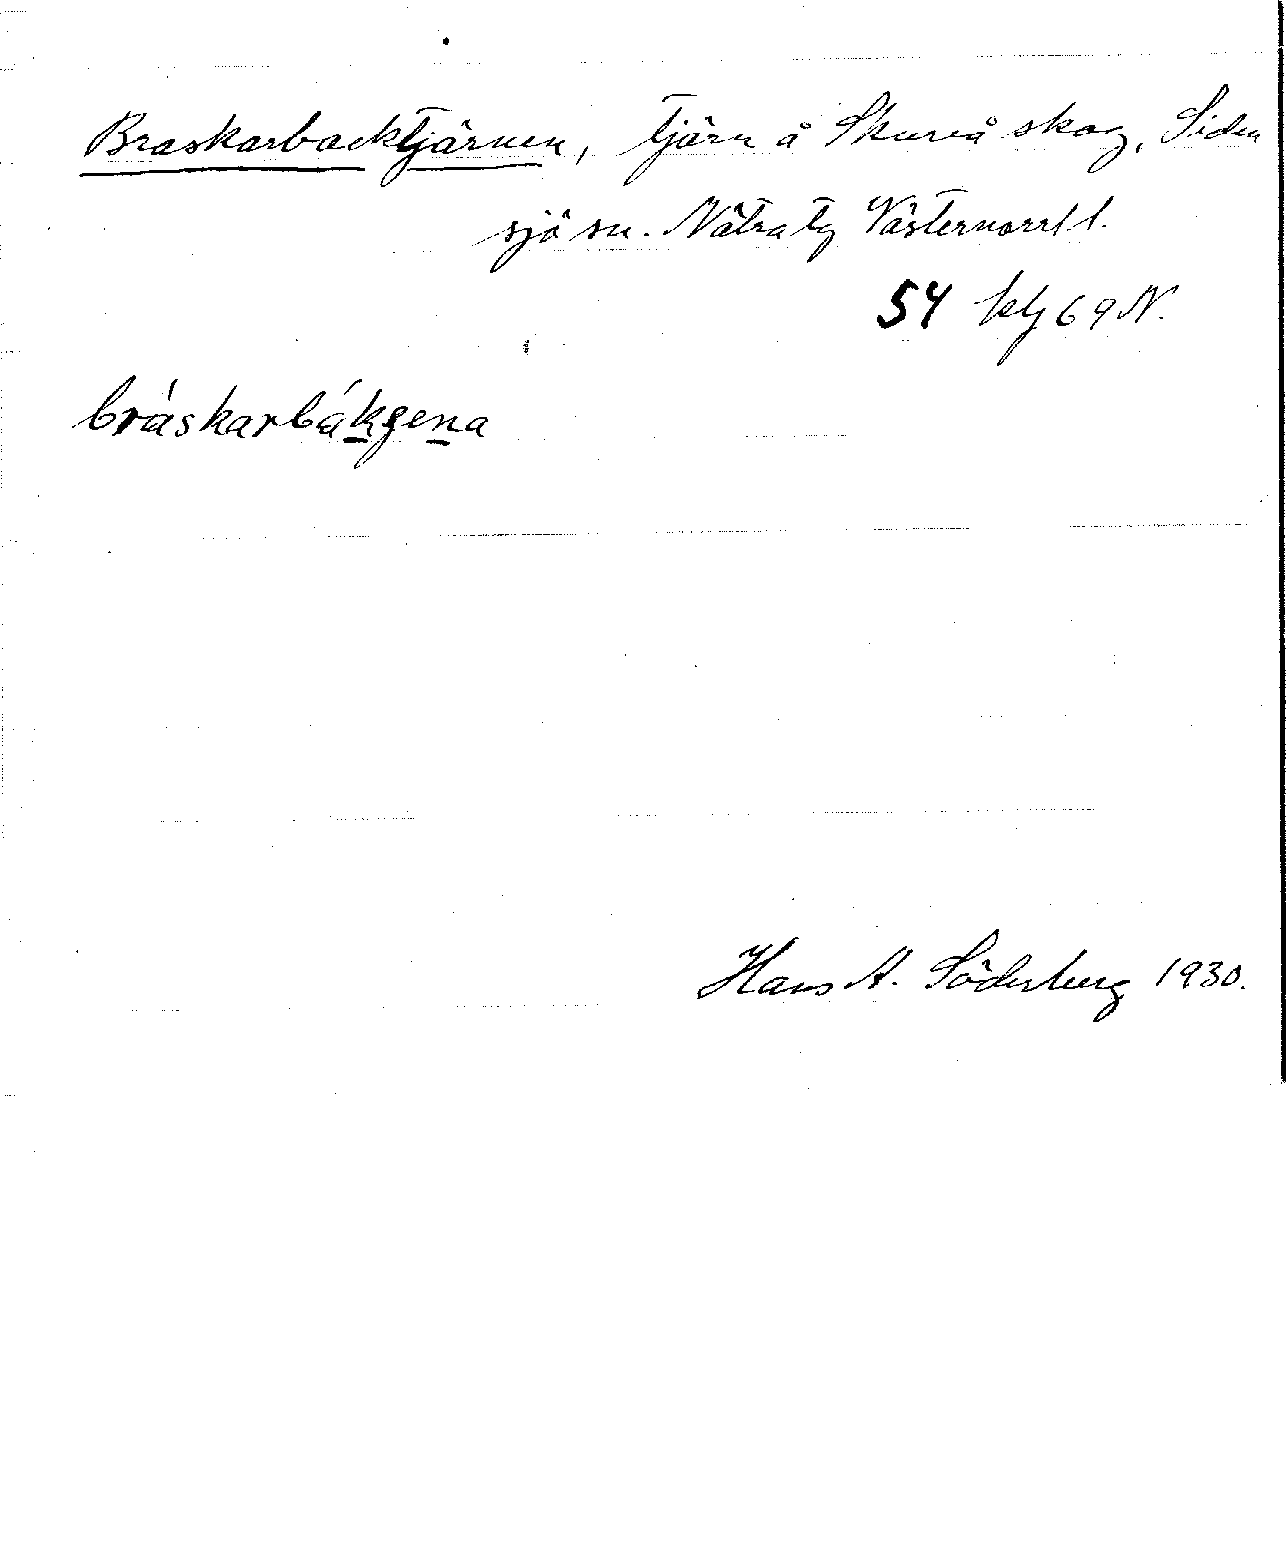 Braskarbacktjärnen, tjärn å Skureå skog, Siden
sjö sn. Nätra tg Västernorrl l.
54 blj 69 N.
bràskarbákgena
Hans A. Söderberg 1930.